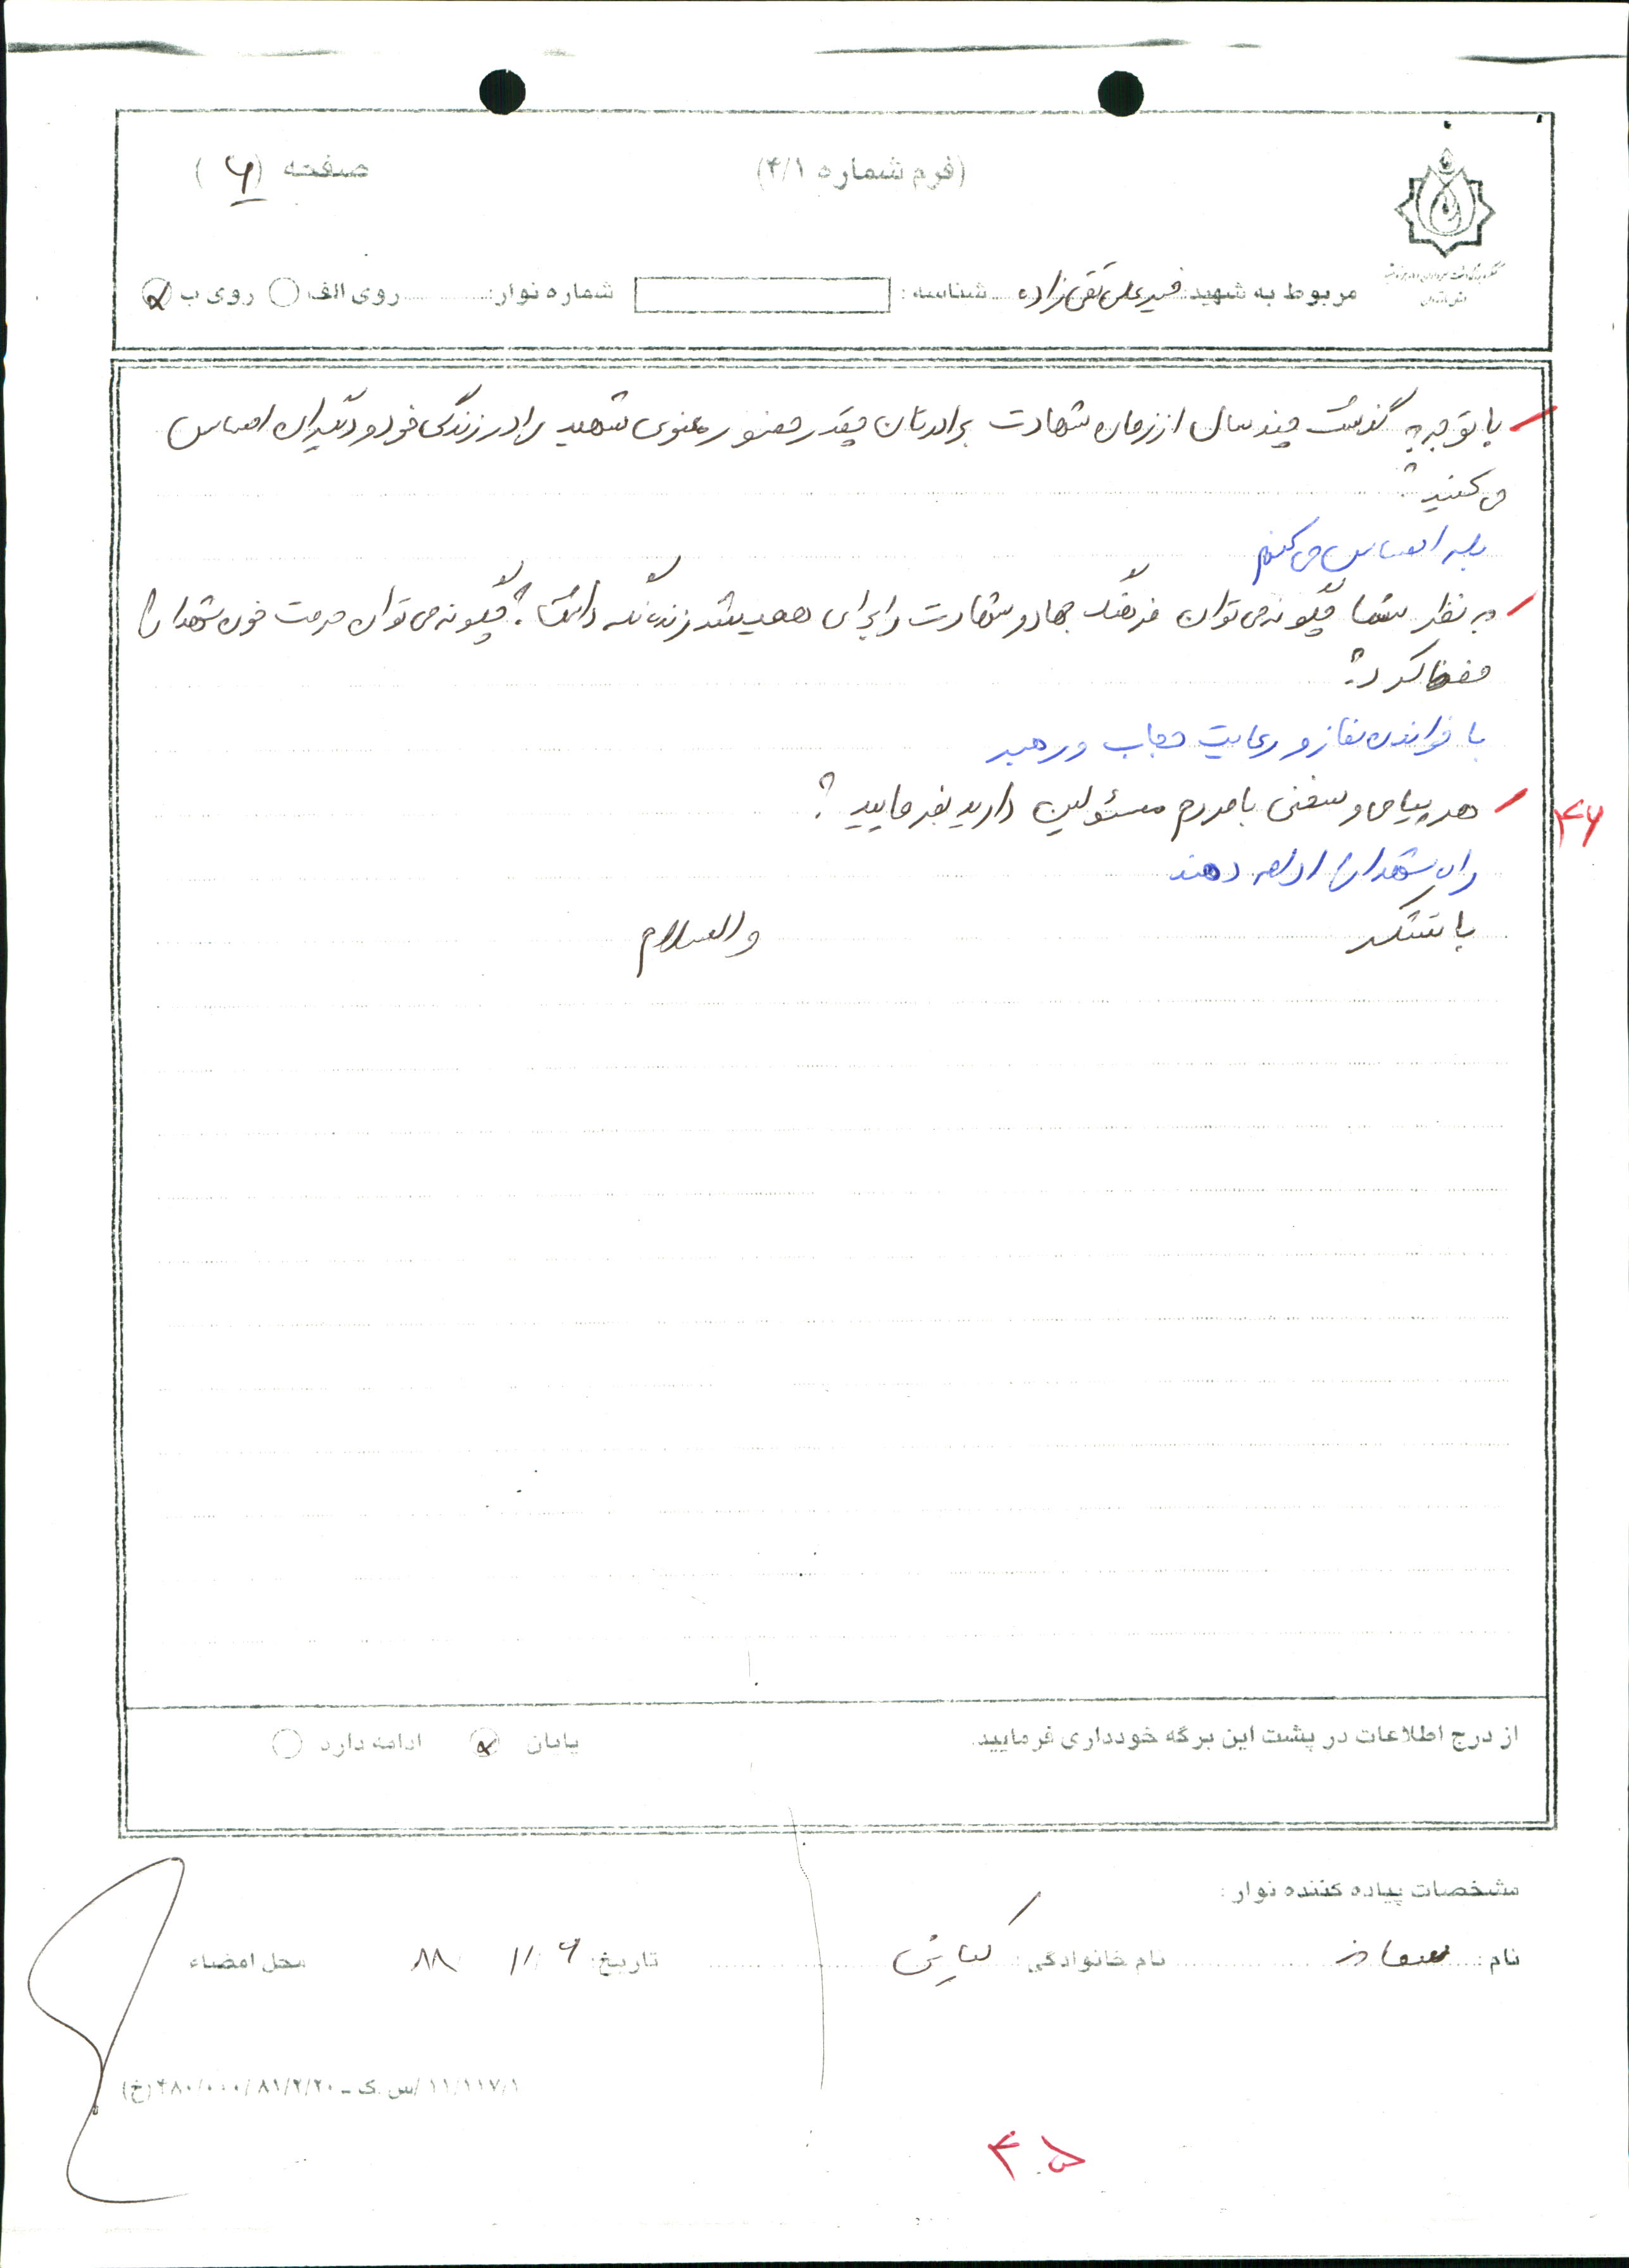 (فرم شماره ۴/۱)
صفحه (۶)
مربوط به شهید: تقی زاده شناسه: شماره نوار: روی الف روی ب
با توجه به گذشت چند سال از زمان شهادت برادرتان چقدر حضور معنوی شهید را در زندگی خود و دیگران احساس
می کنید؟
بله احساس می کنم
به نظر شما چگونه می توان فرهنگ جهاد و شهادت را برای همیشه زنده نگه داشت؟ چگونه می توان حرمت خون شهدا را
حفظ کرد؟
با خواندن نماز و رعایت حجاب و رهبر
هر پیامی و سخنی با مردم مسئولین دارید بفرمایید؟
۴۶
راه شهدا را ادامه دهند
با تشکر والسلام
از درج اطلاعات در پشت این برگه خودداری فرمایید. پایان ادامه دارد
مشخصات پیاده کننده نوار:
نام: نام خانوادگی: تاریخ: ۶ / ۱۱ / ۸۸ محل امضاء
۱۱/۱۱۷/۱/س ک - ۸۱/۲/۲۰/۴۸۰/۰۰۰ (خ)
۴۵